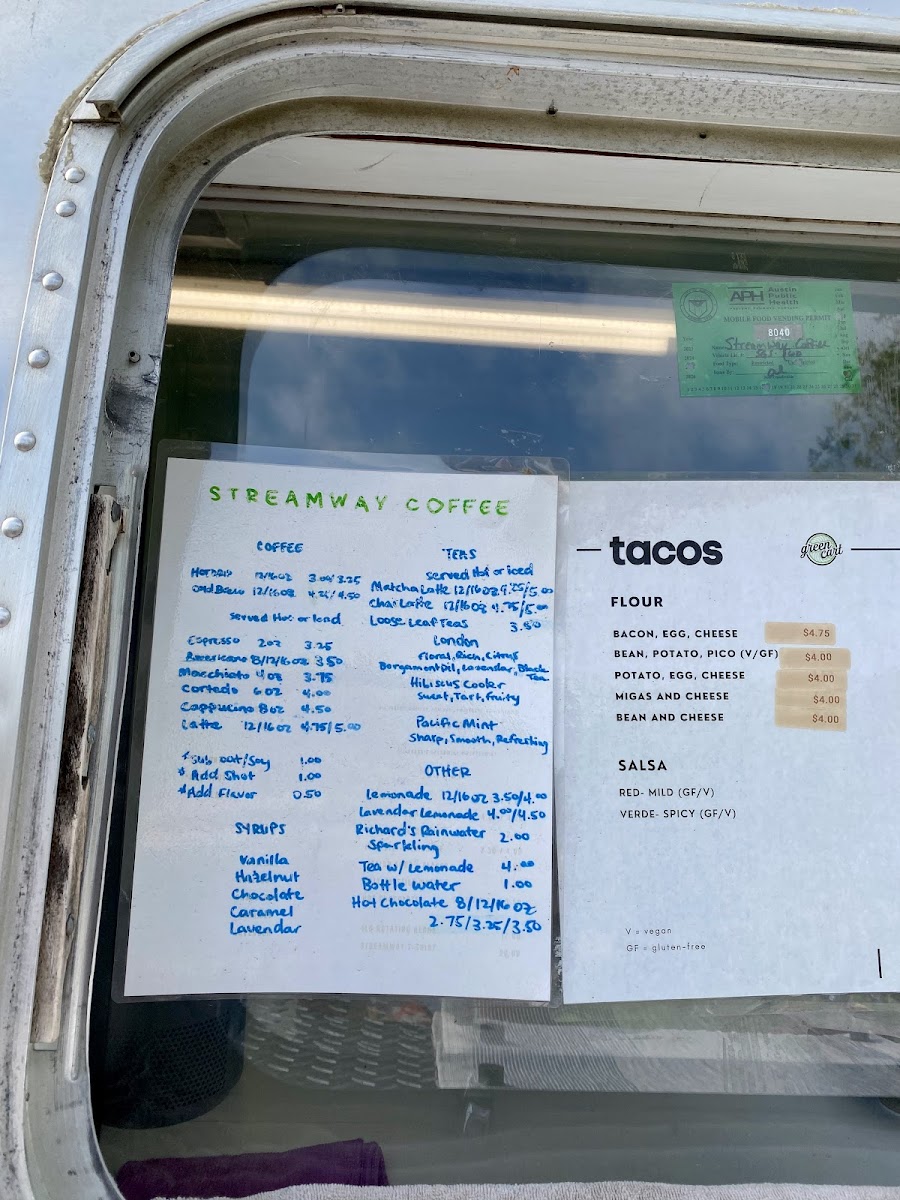 APH Austin Public Health
MOBILE FOOD VENDING PERMIT
8040
Streamway Coffee
STREAMWAY COFFEE
COFFEE
12/16oz 3.00/3.25
Cold Brew 12/16oz 4.25/4.50
served Hot or Iced
Espresso 2oz 3.25
Americano 8/12/16oz 3.50
Macchiato 4oz 3.75
Cortado 6oz 4.00
Cappucino 8oz 4.50
Latte 12/16oz 4.75/5.00
*Sub oat/Soy 1.00
*Add Shot 1.00
*Add Flavor 0.50
SYRUPS
Vanilla
Hazelnut
Chocolate
Caramel
Lavendar
TEAS
served Hot or iced
Matcha Latte 12/16oz 4.75/5.00
Chai Latte 12/16oz 4.75/5.00
Loose Leaf Teas 3.50
London
Floral, Rich, Citrus
Bergamont Oil, Lavender, Black Tea
Hibiscus Cooler
Sweet, Tart, Fruity
Pacific Mint
Sharp, Smooth, Refreshing
OTHER
Lemonade 12/16oz 3.50/4.00
Lavendar Lemonade 4.00/4.50
Richard's Rainwater 2.00
Sparkling
Tea w/ Lemonade 4.00
Bottle Water 1.00
Hot Chocolate 8/12/16oz
2.75/3.25/3.50
tacos
green cart
FLOUR
BACON, EGG, CHEESE $4.75
BEAN, POTATO, PICO (V/GF) $4.00
POTATO, EGG, CHEESE $4.00
MIGAS AND CHEESE $4.00
BEAN AND CHEESE $4.00
SALSA
RED- MILD (GF/V)
VERDE- SPICY (GF/V)
V = vegan
GF = gluten-free